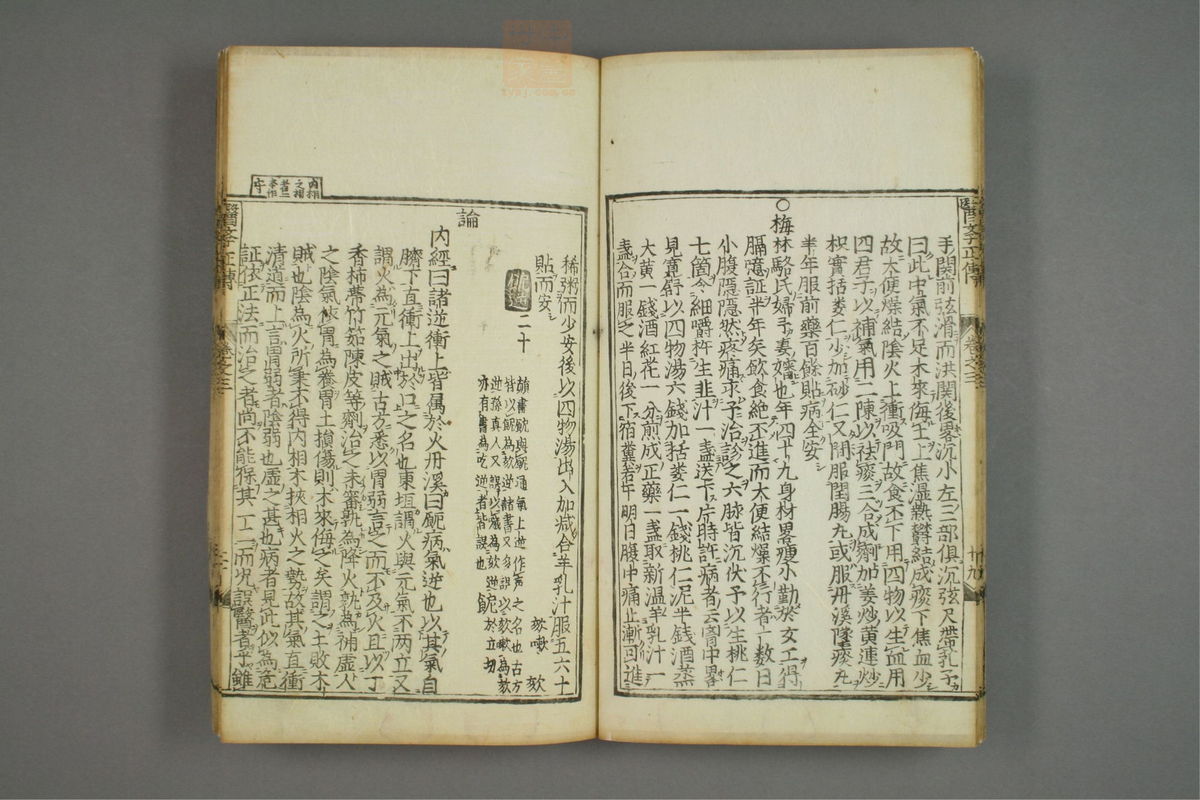 手関前弦滑而洪関後畧沉小左三部俱沉弦尺帶乳予
曰此中氣不足木來侮土上焦湿熱欝結成痰下焦血少
故大便燥結陰火上衝吸門故食不下用四物以生血用
四君子以補氣用二陳以祛痰三合成劑加姜炒黄連炒
枳實括蔞仁少加砂仁又間服潤腸丸或服丹溪墜痰丸
半年服前藥百餘貼病全安
○梅林駱氏婦予妻嬸也年四十九身材畧瘦小勤於女工得
膈噎証半年矣飲食絶不進而大便結燥不行者十数日
小腹隱隱然疼痛求予治診之六脉皆沉伏予以生桃仁
七箇令細嚼杵生韭汁一盞送下片時許病者云胷中畧
見寬舒以四物湯六錢加括蔞仁一錢桃仁泥半錢酒蒸
大黄一錢酒紅花一分煎成正藥一盞取新温羊乳汁一
盞合而服之半日後下宿糞若干明日腹中痛止漸可進
稀粥而少安後以四物湯出入加减合羊乳汁服五六十
貼而安
二十
欬嗽 欬
頡書 與 通氣上逆作声之名也古方
皆以 為欬逆諸書又多誤以欬嗽為欬
逆孫真人又誤以噦為欬逆
亦有書為吃逆者皆誤也 於立切
論
内經曰諸逆衝上皆属於火丹溪曰呃病氣逆也以其氣自
臍下直衝上出於口之名也東垣謂火與元氣不两立又
謂火為元氣之賊古方悉以胃弱言之而不及火且以丁
香柿蒂竹茹陳皮等劑治之未審孰為降火孰為補虚人
之陰氣依胃為養胃土損傷則木來侮之矣謂之土敗木
賊也陰為火所乗不得内相木挾相火之勢故其氣直衝
清道而上言胃弱者陰弱也虚之甚也病者見此似為危
証依正法而治之者尚不能保其一二而况誤醫者乎雖
内相
之相
者一
本作
守
醫斈正傳
卷之三
十九
醫斈正傳
卷之三
二十